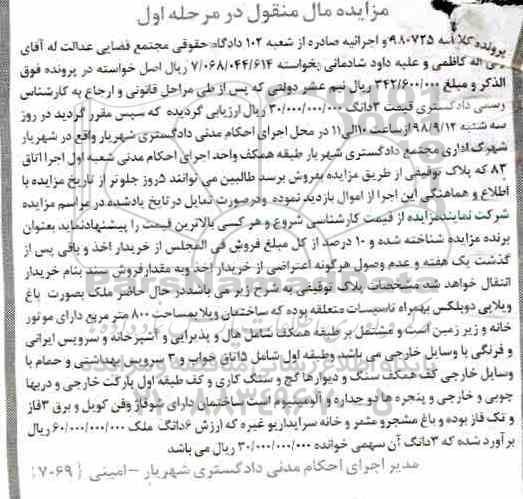 مزایده مال منقول در مرحله اول
پرونده کلاسه ۹۸۰۷۲۵ و اجرائیه صادره از شعبه ۱۰۲ دادگاه حقوقی مجتمع قضایی عدالت له آقای
اله کاظمی و علیه داود شادمانی بخواسته ۷/۰۶۸/۰۴۴/۶۱۴ ریال اصل خواسته در پرونده فوق
الذکر و مبلغ ۳۴۲/۶۰۰/۰۰۰ ریال نیم عشر دولتی که پس از طی مراحل قانونی و ارجاع به کارشناس
رسمی دادگستری قیمت ۳دانگ ۳۰/۰۰۰/۰۰۰/۰۰۰ ریال ارزیابی گردیده که سپس مقرر گردید در روز
سه شنبه ۹۸/۹/۱۲ ازساعت ۱۰الی۱۱ در محل اجرای احکام مدنی دادگستری شهریار واقع در شهریار
شهرک اداری مجتمع دادگستری شهریار طبقه همکف واحد اجرای احکام مدنی شعبه اول اجرا اتاق
۸۳ که پلاک توقیفی از طریق مزایده بفروش برسد طالبین می توانند ۵روز جلوتر از تاریخ مزایده با
اطلاع و هماهنگی این اجرا از اموال بازدید نموده ودرصورت تمایل درتایخ یادشده در مراسم مزایده
شرکت نمایندمزایده از قیمت کارشناسی شروع و هر کسی بالاترین قیمت را پیشنهادنماید بعنوان
برنده مزایده شناخته شده و ۱۰ درصد از کل مبلغ فروش فی المجلس از خریدار اخذ و باقی پس از
گذشت یک هفته و عدم وصول هرگونه اعتراضی از خریدار اخذ وبه مقدارفروش سند بنام خریدار
انتقال خواهد شد مشخصات پلاک توقیفی به شرح زیر می باشددر حال حاضر ملک بصورت باغ
ویلایی دوبلکس بهمراه تاسیسات متعلقه بوده که ساختمان ویلا بمساحت ۸۰۰ متر مربع دارای موتور
خانه و زیر زمین است و مشتمل بر طبقه همکف شامل هال و پذیرایی و آشپزخانه و سرویس ایرانی
و فرنگی با وسایل خارجی می باشد وطبقه اول شامل ۵اتاق خواب و ۳ سرویس بهداشتی و حمام با
وسایل خارجی کف همکف سنگ و دیوارها گچ و سنگ کاری و کف طبقه اول پارکت خارجی و دربها
چوبی و خارجی و پنجره ها دو جداره و آلومینیوم است ساختمان دارای شوفاژ وفن کویل و برق ۳فاز
و تک فاز بوده و باغ مشجرو مثمر و خانه سرایداریو غیره که ارزش ۶دانگ ملک ۶۰/۰۰۰/۰۰۰/۰۰۰ ریال
برآورد شده که ۳دانگ آن سهمی خوانده ۳۰/۰۰۰/۰۰۰/۰۰۰ ریال می باشد
مدیر اجرای احکام مدنی دادگستری شهریار -امینی (۷۰۶۹)